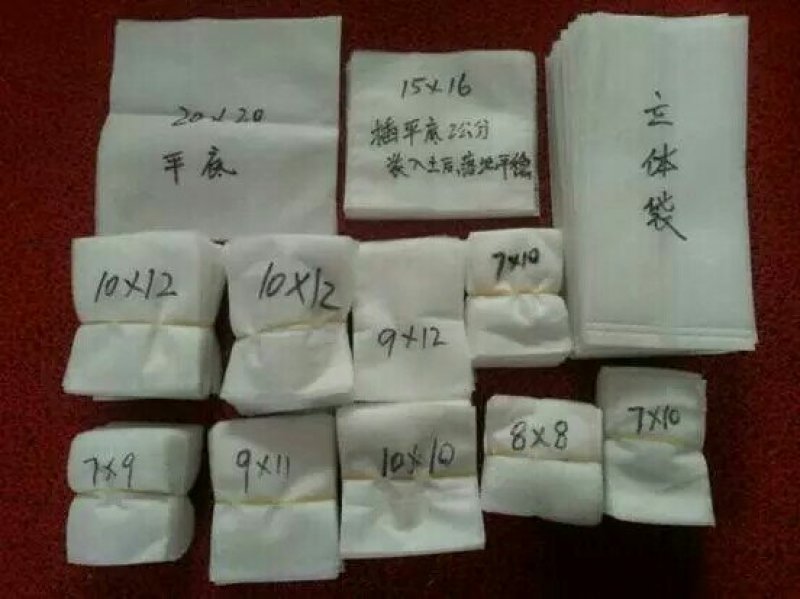 20×20
平底
15×16
插平底2公分
装入土后,落地平稳
立体袋
10×12
10×12
9×12
7×10
7×9
9×11
10×10
8×8
7×10